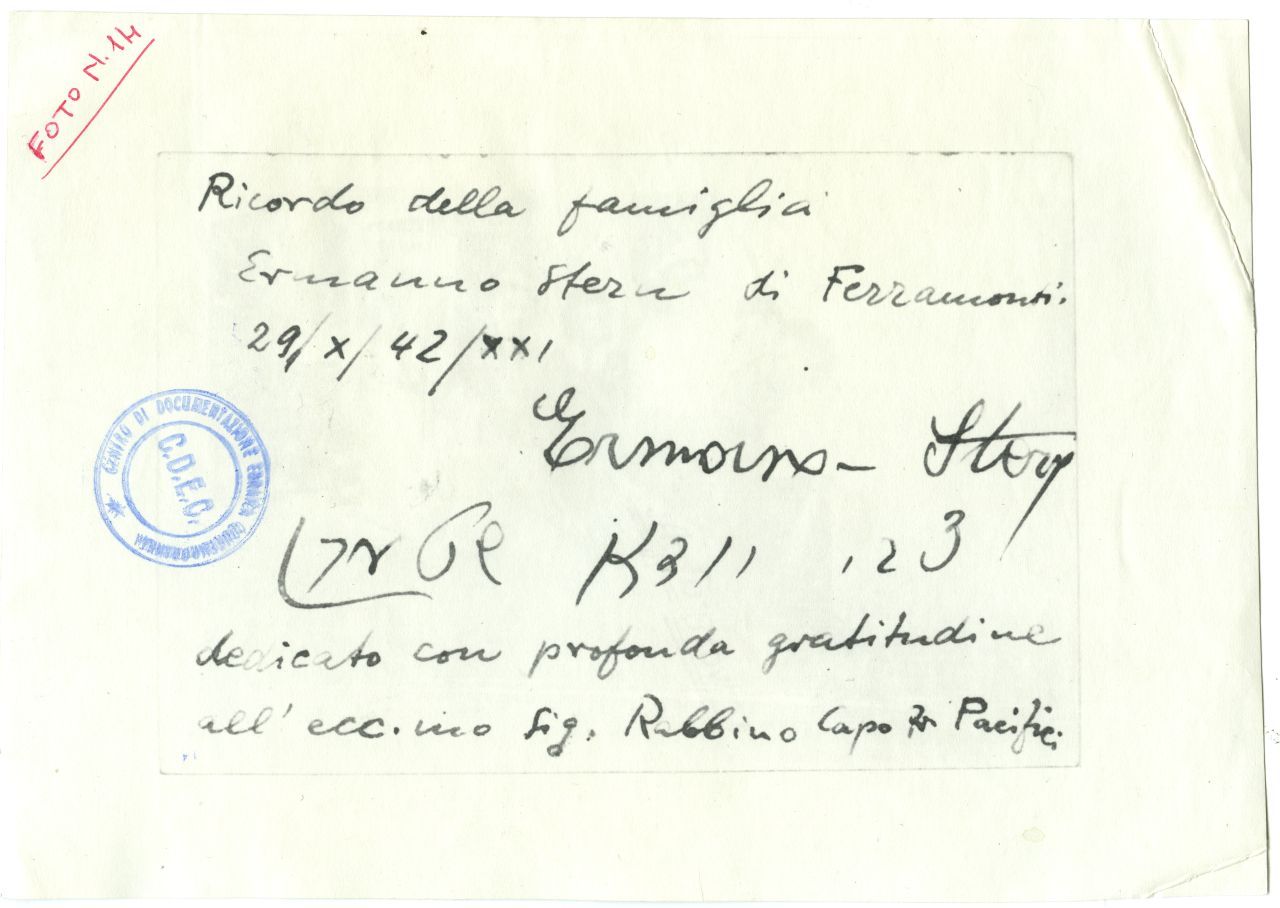 FOTO N. 14
Ricordo della famiglia
Ermanno Stern di Ferramonti.
29/X/42/XXI
Ermanno Stern
dedicato con profonda gratitudine
all' ecc.mo Sig. Rabbino Capo Pacifici
CENTRO DI DOCUMENTAZIONE EBRAICA CONTEMPORANEA
C.D.E.C.
14